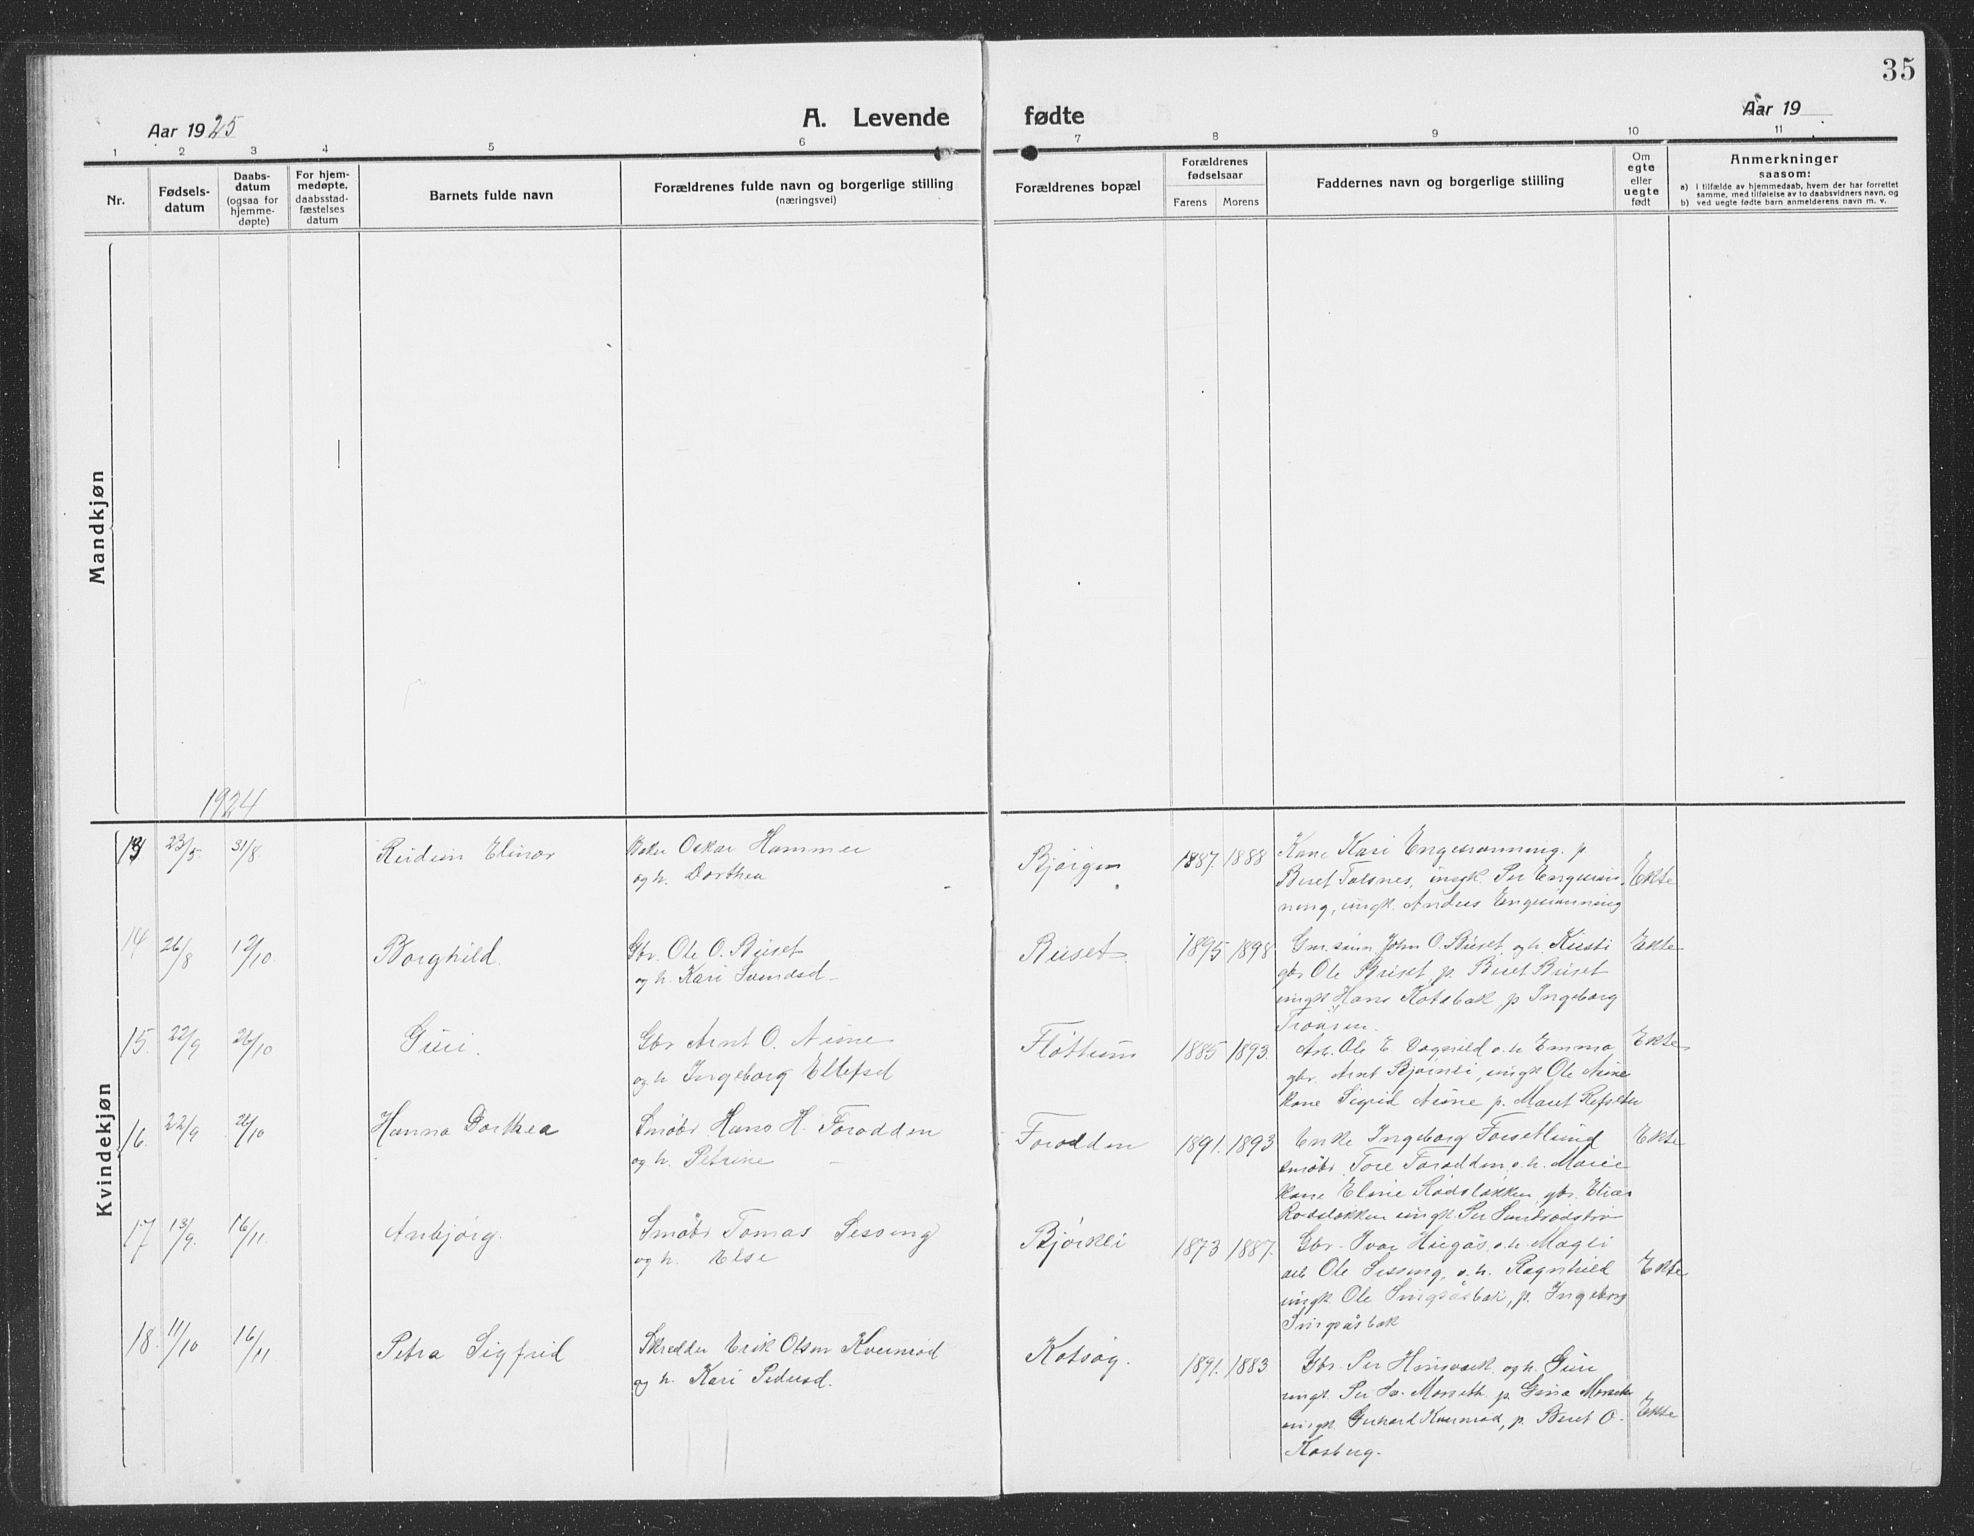 35
Aar 1925
A. Levende fødte
Aar 19
1 2 3 4 5 6 7 8 9 10 11
Nr.
Fødsels-
datum
Daabs-
datum
(ogsaa for
hjemme-
døpte)
For hjem-
medøpte,
daabsstad-
fæstelses
datum
Barnets fulde navn
Forældrenes fulde navn og borgerlige stilling
(næringsvei)
Forældrenes bopæl
Forældrenes
fødselsaar
Farens Morens
Faddernes navn og borgerlige stilling
Om
egte
eller
uegte
født
Anmerkninger
saasom:
a) i tilfælde av hjemmedaab, hvem der har forrettet
samme, med tilføielse av to daabsvidners navn, og
b) ved uegte fødte barn anmelderens navn m. v.
Mandkjøn
1924
Kvindekjøn
13 23/5. 31/8. Reidun Elinor
Baker Oskar Hammer
og h. Dorthea
Bjørgen 1887. 1888
Kone Kari Engesranning. p
Beret Talsnes, ungk. Per Engesran-
ning, ungk. Anders Engesranning
Ekte
14 26/8 12/10. Borghild.
Gbr. Ole O. Buset
og h. Kari Svendsd
Buset. 1895 1898
Gm.sønn John O. Buset, og h. Kirsti
gbr Ole Buset, p. Beret Buset
ungk Hans Kotsbak, p Ingeborg
Troåsen.
Ekte
15. 22/9 26/10 Guri.
Gbr Arnt O. Aune
og h Ingeborg Ellefsd
Fløttum 1885 1893.
Arb. Ole E. Vagnild o. h Emma
gbr. Arnt Bjørnli, ungk Ole Aune
kone Sigrid Aune p. Maret Refseter
Ekte
16. 22/9 26/10 Hanna Dorthea
Småbr. Hans H. Forodden
og h. Petrine
Forodden 1891. 1893
Enke Ingeborg Forsetlund
småbr. Tore Forodden o. h. Marie
kone Eline Rødsløkken, gbr. Elias
Rødsløkken ungk. Per
Ekte
17 13/9. 16/11. Anbjørg.
Småbr Tomas Sesseng
og h. Else
Bjørkli 1873 1887.
Gbr. Ivar Haugås, o. h. Magli
arb Ole Sesseng, o. h. Ragnhild
ungk. Ole Singsåsbak, p. Ingeborg
Singsåsbak
Ekte
18. 11/10 16/11 Petra Sigfrid
Skredder Erik Olsen Kvernrød
og h. Kari Pedersd.
Kotsøg. 1891. 1883
Gbr. Per og h. Guri
ungk. Per Morseth. p. Gina
ungk. Gerhard Kvernrød, p. Beret O.
Kosberg.
Ekte